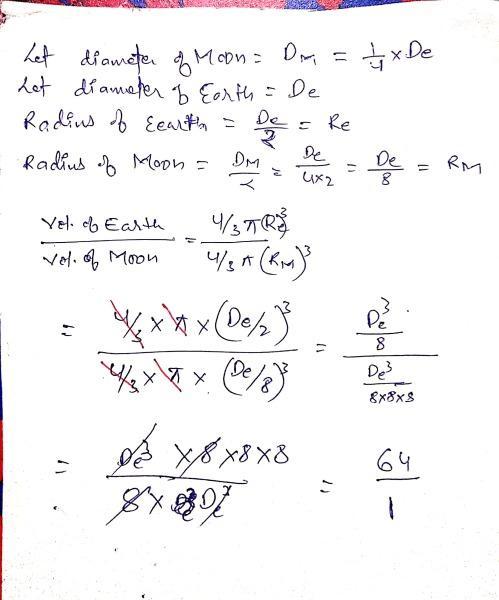 Let diameter of Moon = D_M = 1/4 × De
Let diameter of Earth = De
Radius of Eearth = De/2 = Re
Radius of Moon = D_M/2 = De/4×2 = De/8 = R_M
Vol. of Earth / Vol. of Moon = 4/3 π (Re)^3 / 4/3 π (R_M)^3
= 4/3 × π × (De/2)^3 / 4/3 × π × (De/8)^3 = De^3/8 / De^3/8×8×8
= De^3 × 8 × 8 × 8 / 8 × De^3 = 64/1